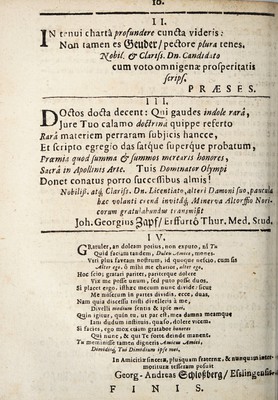 10.
II.
IN tenui chartâ profundere cuncta videris:
Non tamen es Geuder/ pectore plura tenes.
Nobil. & Clariss. Dn. Candidato
cum voto omnigenæ prosperitatis
scrips.
PRÆSES.
III.
DOctos docta decent: Qui gaudes indole rarâ,
Jure Tuo calamo doctrina quippe referto
Rarâ materiem perraram subjicis hancce,
Et scripto egregio das satque superque probatum,
Præmia quod summa & summos merearis honores,
Sacrâ in Apollinis Arte. Tuis Dominator Olympi
Donet conatus porro succestibus almis!
Nobiliss. atq; Clariss. Dn. Licentiato, alteri Damoni suo, paucula
hæc volanti crenâ invitâq; Minerva Altorffio Noriv-
corum gratulabundus transmisit
Joh. Georgius Zapf/ Erffurtô Thur. Med. Stud.
IV.
GRatuler, an doleam potius, non exputo, ni Tu
Quid faciam tandem, Dulcis Amice, mones.
Vati plus faveam nostrum, id quoque nosco, cum sis
Alter ego, ô mihi me charior, alter ego,
Hoc seto; gratari pariter, pariterque dolere
Vix me posse unum, sed puto posse duos.
Si placet ergo, istihæc mecum nunc divide: sicut
Me nosterim in partes dividis, ecce, duas,
Nam quia discessu tristi divelleris à me,
Divelli medium sentis & ipse mei.
Quin igitur, quin eu, ut par est, mea damna meamque
Jam dudum instituis, quaso, dolere vicem.
Si facies, ego mox etiam gratabor honores
Qui nunc, & qui Te forte deinde manent.
Tu meminisse tamen digneris Amicus Amici,
Dimidiiq; Tui Dimidium ipse mei,
In Amicitiæ sinceræ, plusquam fraternæ, & nunquam inter-
morituræ tesseram posuit
Georg-Andreas Schloßberg/ Esslingensis
FINIS.